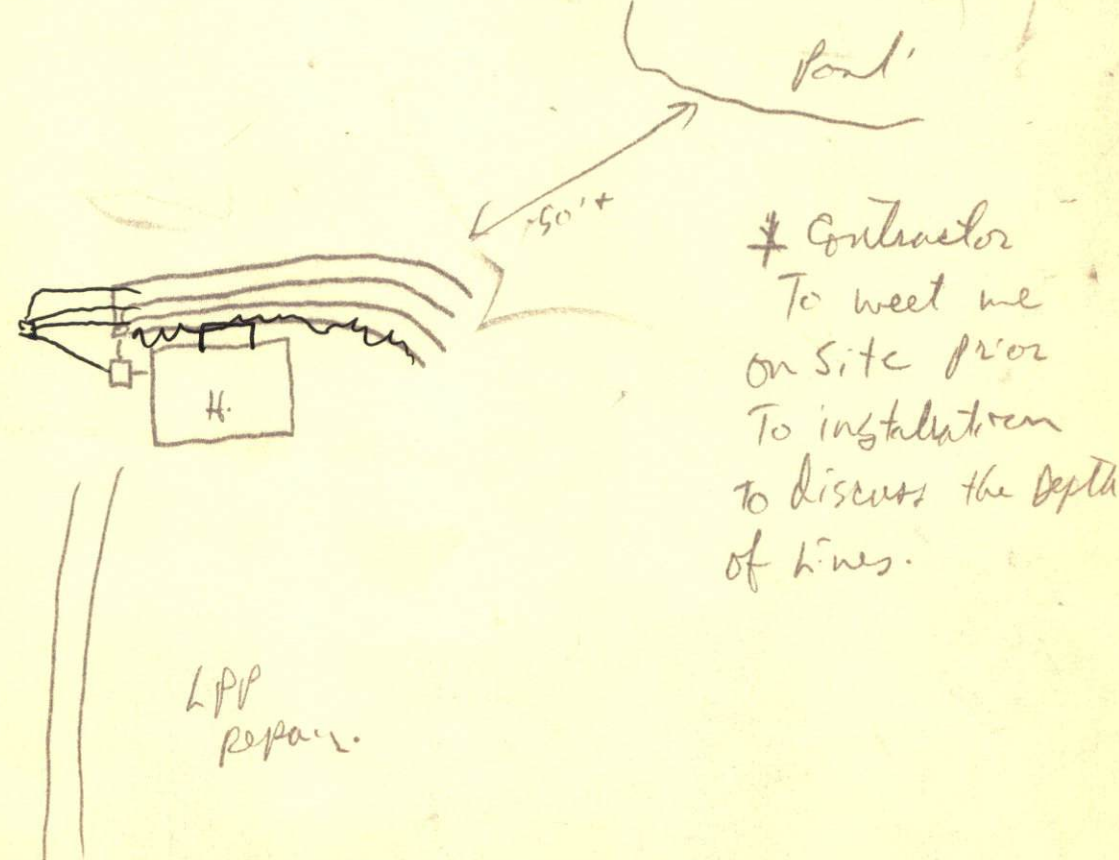 Pond
50'+
* Contractor
To meet me
on Site prior
To installation
to discuss the Depth
of Lines.
H.
LPP
repair.